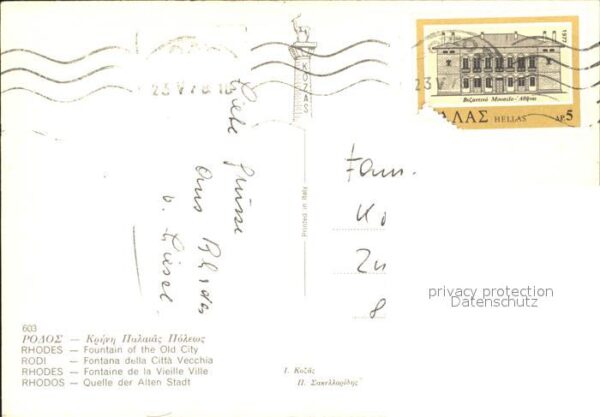 23 V 78
KOZAS
1977
Βυζαντινό Μουσείο - Ἀθῆναι
ΛΑΣ HELLAS ΔΡ. 5
Liebe Grüsse
aus Rhodos
v. Liesel.
Fam.
Ko
Zu
8
Printed in Italy
privacy protection
Datenschutz
603
ΡΟΔΟΣ — Κρήνη Παλαιᾶς Πόλεως
RHODES — Fountain of the Old City
RODI — Fontana della Città Vecchia
RHODES — Fontaine de la Vieille Ville
RHODOS — Quelle der Alten Stadt
Ι. Κοζᾶς
Π. Σακελλαρίδης